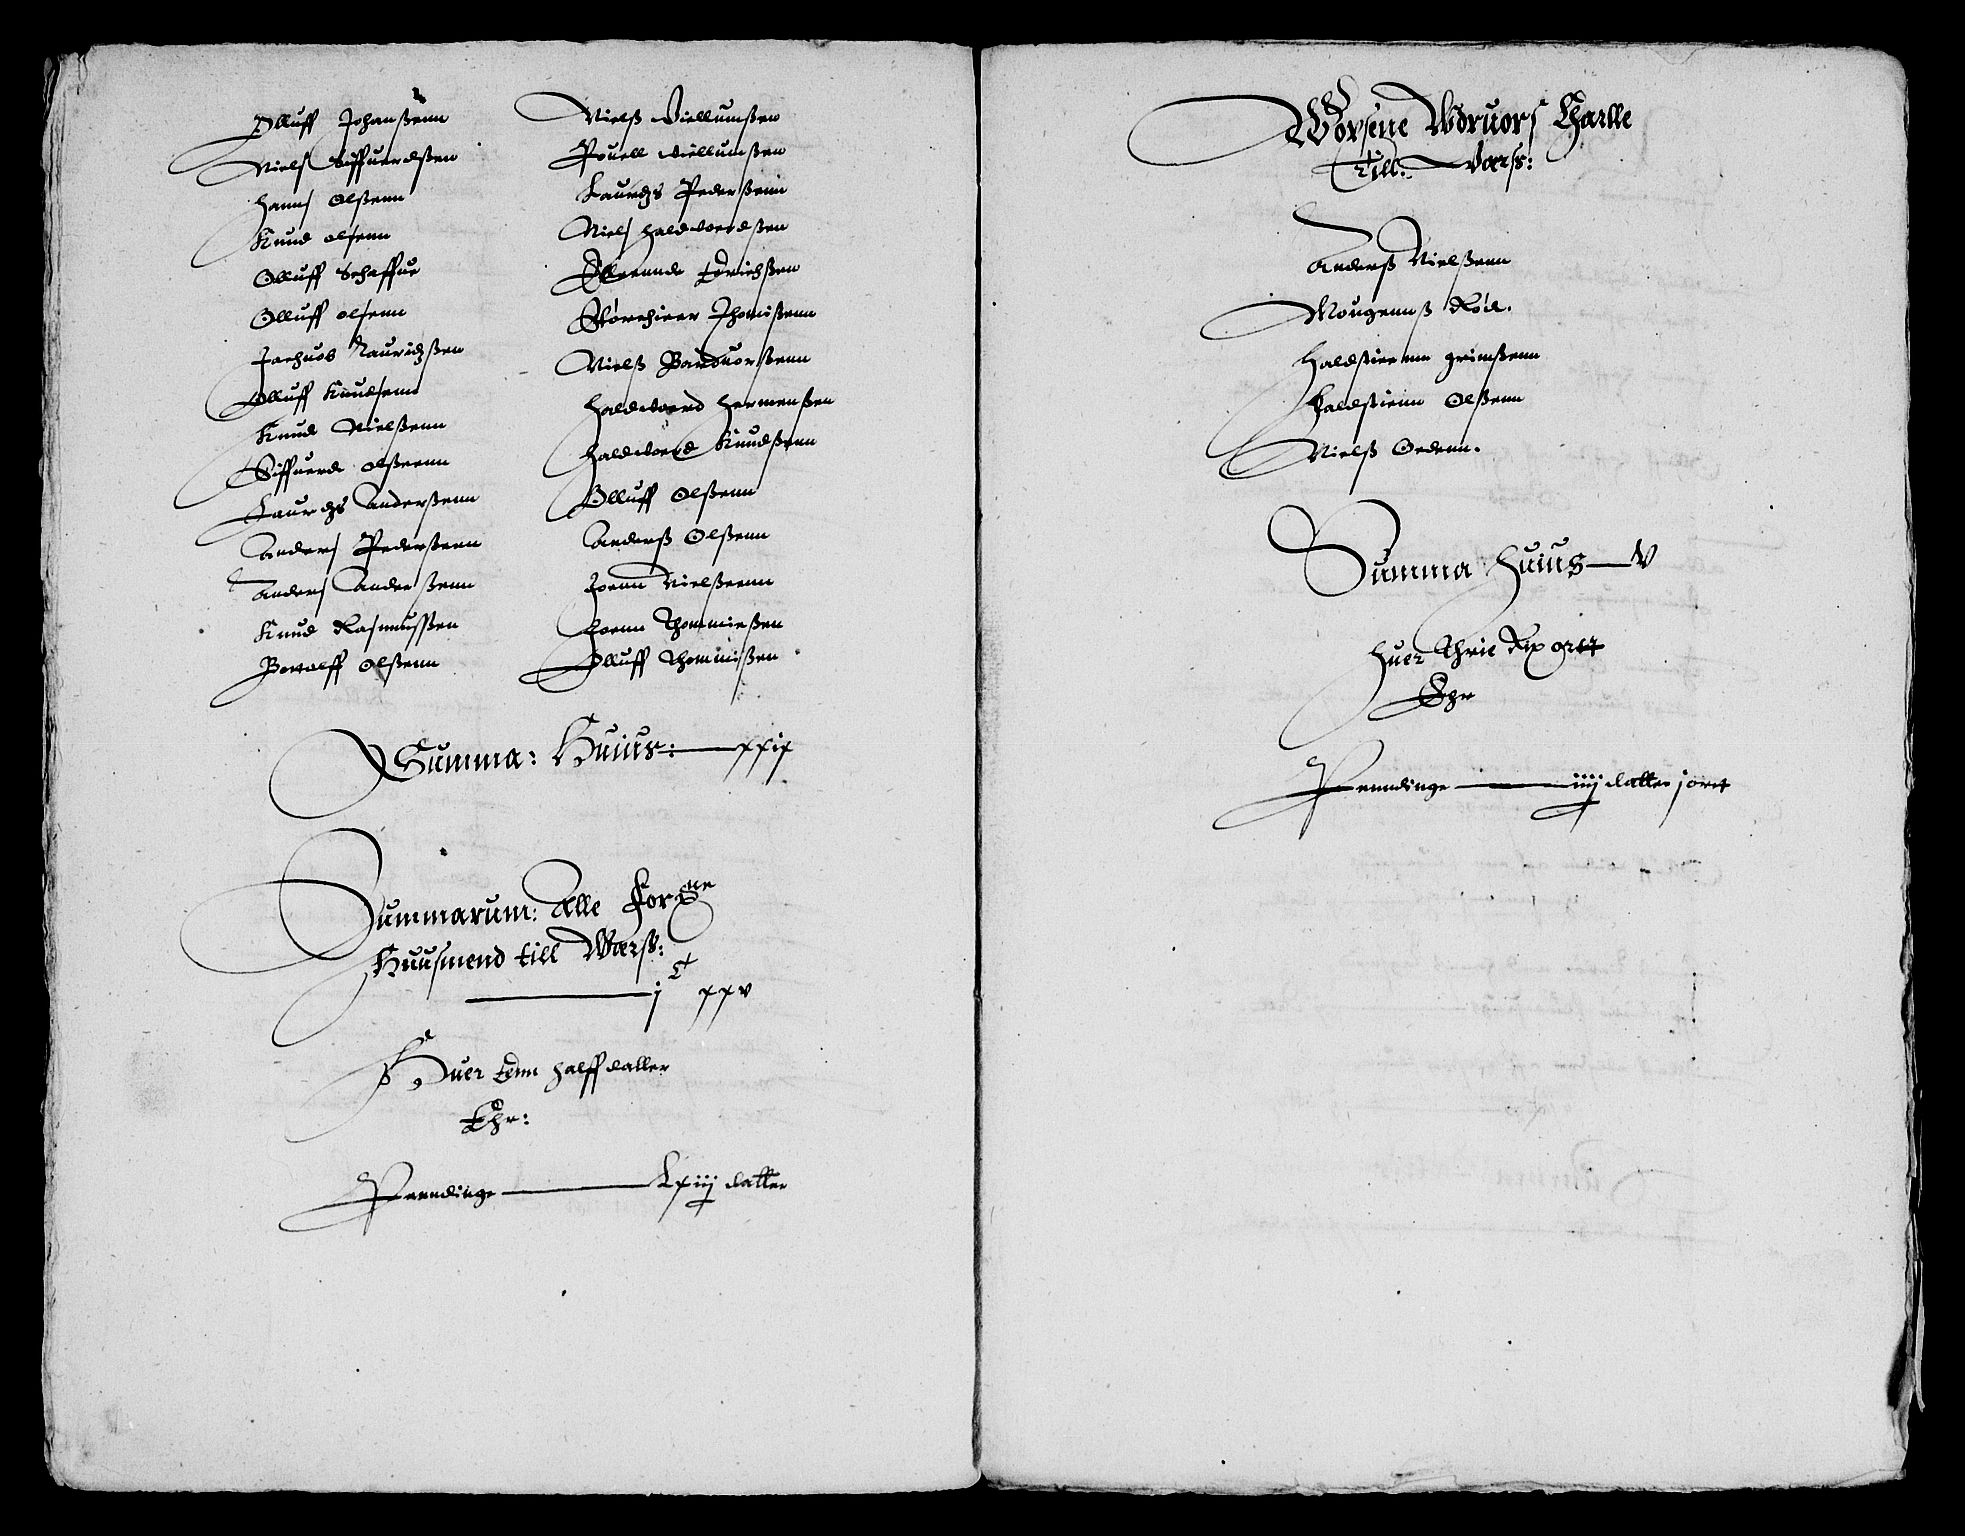 Olluff Johanßenn
Niels Siffuerdßen
Hanns Olßenn
Knud olsenn
Olluff Schaffue
Olluff olsenn
Jachuob Lauridzßen
Olluff Knudsenn
Knud Nielßenn
Siffuerd olßenn
Laurdzs Anderßenn
Anders Pederßenn
Anders Anderßenn
Knud Rasmußen
Olßenn
Nielß Villumßen
Pouell villumßen
Laurdzs Pederßenn
Niels haldwordßen
Erichßen
Thomißenn
Nielß Barduorßenn
Haldword Hermenßen
Haldword Knudßenn
Olluff Olßenn
Anderß Olßenn
Joenn Nielßenn
Joenn Thommießen
Olluff Thommißen
Summa: Huius: xxix
Summarum: Alle Forßne
Huusmend till Wærß:
jᶜ xxv
Huer Enn halff daller
Ehr:
Penndinge Lxiij daller
Wopsene Wdruors Charlle
Till: Værß:
Anderß Nielßenn
Mougennß Rød.
Haldstienn grimßenn
Haldstienn Olßenn
Nielß Oedenn.
Summa Huius V
Huer Thrie Rix ortt
Ehr
Penndinge iiij daller j ort